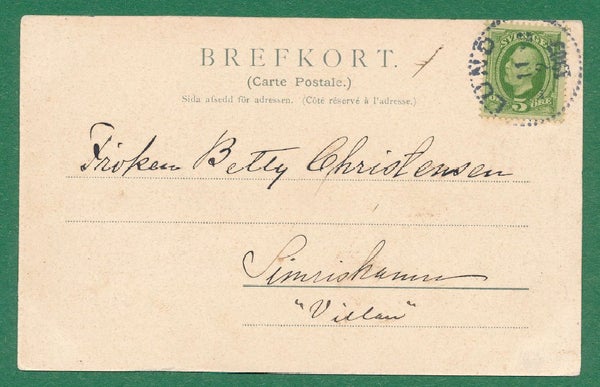 BREFKORT.
(Carte Postale.)
Sida afsedd för adressen. (Côté réservé à l'adresse.)
SVERIGE
5 ÖRE
LUND
Fröken Betty Christensen
Simrishamn
"Villan"